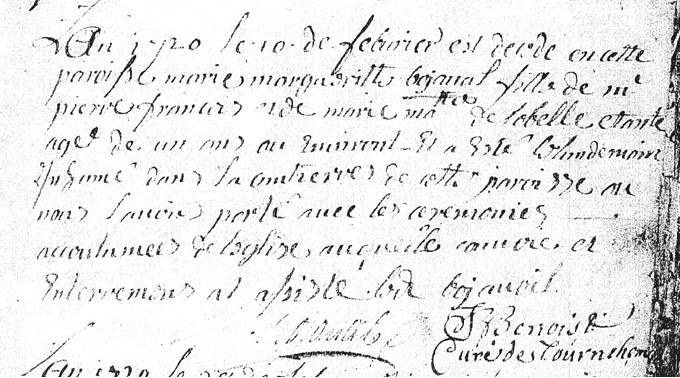 Lan 1720 le 10 de februier est decede en cette
paroisse marie margueritte bojaual fille de mr
pierre francois et de marie matte de lobelle etante
agee de un ans ou enuiront et a este le landemain
Inhume dans la cimtierre de cette paroisse ou
nous lauons porté auec les ceremonies
accoutumees de leglise auquelle conuoie et
Enterrement at asiste led bojauoil
JB Benoist
Curé des Tournehem
Lan 1720 le